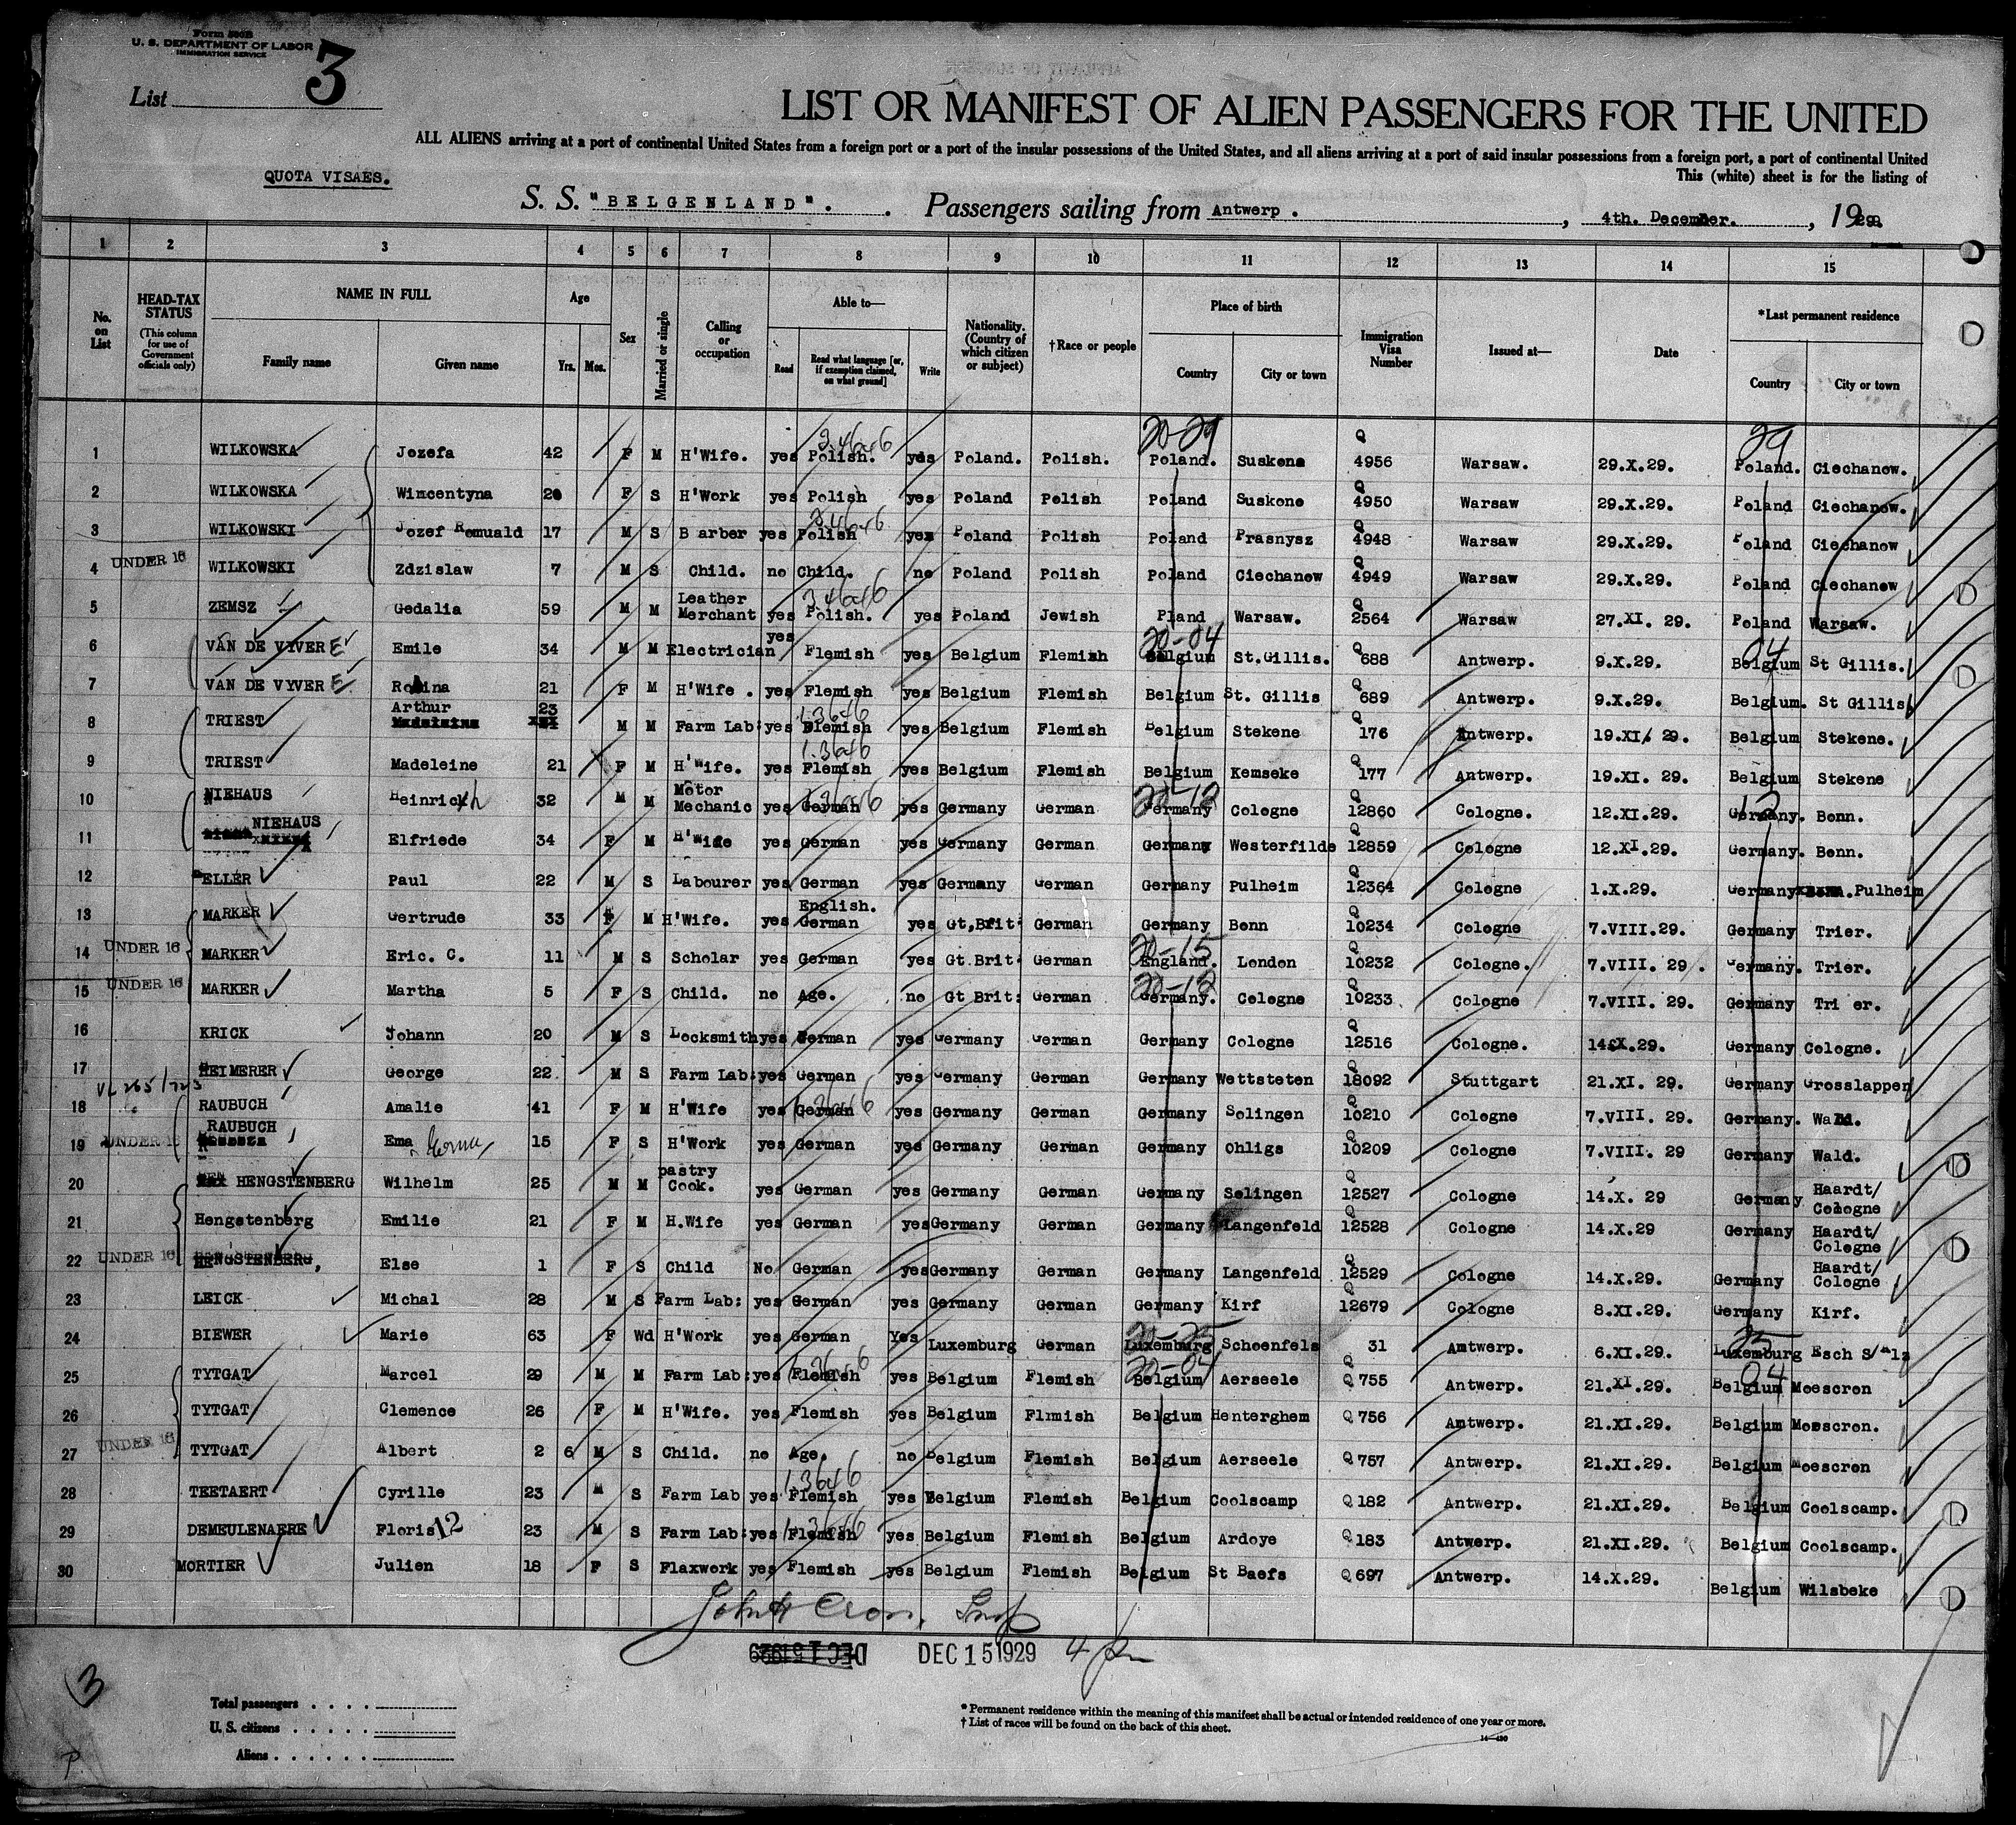 Form 500B
U. S. DEPARTMENT OF LABOR
IMMIGRATION SERVICE
List 3
LIST OR MANIFEST OF ALIEN PASSENGERS FOR THE UNITED
ALL ALIENS arriving at a port of continental United States from a foreign port or a port of the insular possessions of the United States, and all aliens arriving at a port of said insular possessions from a foreign port, a port of continental United
This (white) sheet is for the listing of
QUOTA VISAES.
S. S. "BELGENLAND". Passengers sailing from Antwerp. , 4th. December. , 1929.
1 2 3 4 5 6 7 8 9 10 11 12 13 14 15
No. on List
HEAD-TAX STATUS (This column for use of Government officials only)
NAME IN FULL
Family name Given name
Age
Yrs. Mos.
Sex
Married or single
Calling or occupation
Able to—
Read Read what language [or, if exemption claimed, on what ground] Write
Nationality. (Country of which citizen or subject)
†Race or people
Place of birth
Country City or town
Immigration Visa Number
Issued at—
Date
*Last permanent residence
Country City or town
20-29 29
1 WILKOWSKA Jozefa 42 F M H'Wife. yes Polish. yes Poland. Polish. Poland. Suskone Q 4956 Warsaw. 29.X.29. Poland. Ciechanow.
2 WILKOWSKA Wincentyna 20 F S H'Work yes Polish yes Poland Polish Poland Suskone Q 4950 Warsaw 29.X.29. Poland Ciechanow.
3 WILKOWSKI Jozef Romuald 17 M S Barber yes Polish yes Poland Polish Poland Prasnysz Q 4948 Warsaw 29.X.29. Poland Ciechanow
4 UNDER 16 WILKOWSKI Zdzislaw 7 M S Child. no Child. no Poland Polish Poland Ciechanow Q 4949 Warsaw 29.X.29. Poland Ciechanow
5 ZEMSZ Gedalia 59 M M Leather Merchant yes Polish. yes Poland Jewish Pland Warsaw. Q 2564 Warsaw 27.XI. 29. Poland Warsaw.
20-04 04
6 VAN DE VYVERE Emile 34 M M Electrician yes Flemish yes Belgium Flemish Belgium St.Gillis. Q 688 Antwerp. 9.X.29. Belgium St Gillis.
7 VAN DE VYVERE Rosina 21 F M H'Wife . yes Flemish yes Belgium Flemish Belgium St. Gillis Q 689 Antwerp. 9.X.29. Belgium. St Gillis
8 TRIEST Arthur 23 M M Farm Lab: yes Flemish yes Belgium Flemish Belgium Stekene Q 176 Antwerp. 19.XI. 29. Belgium Stekene.
9 TRIEST Madeleine 21 F M H'Wife. yes Flemish yes Belgium Flemish Belgium Kemseke Q 177 Antwerp. 19.XI. 29. Belgium Stekene
20-12 12
10 NIEHAUS Heinrich 32 M M Motor Mechanic yes German yes Germany German Germany Cologne Q 12860 Cologne. 12.XI.29. Germany. Bonn.
11 NIEHAUS Elfriede 34 F M H'Wife yes German yes Germany German Germany Westerfilde Q 12859 Cologne 12.XI.29. Germany. Bonn.
12 ELLER Paul 22 M S Labourer yes German yes Germany German Germany Pulheim Q 12364 Cologne 1.X.29. Germany Pulheim
13 MARKER Gertrude 33 F M H'Wife. yes English. German yes Gt.Brit: German Germany Bonn Q 10234 Cologne 7.VIII.29. Germany Trier.
20-15
14 UNDER 16 MARKER Eric. C. 11 M S Scholar yes German yes Gt.Brit: German England. London Q 10232 Cologne. 7.VIII. 29. Germany. Trier.
20-12
15 UNDER 16 MARKER Martha 5 F S Child. no Age. no Gt Brit: German Germany. Cologne Q 10233 Cologne 7.VIII. 29. Germany Tri er.
16 KRICK Johann 20 M S Locksmith yes German yes Germany German Germany Cologne Q 12516 Cologne. 14.X.29. Germany Cologne.
17 HEIMERER George 22 M S Farm Lab: yes German yes Germany German Germany Wettsteten Q 18092 Stuttgart 21.XI. 29. Germany Grosslappen
18 RAUBUCH Amalie 41 F M H'Wife yes German yes Germany German Germany Solingen Q 10210 Cologne 7.VIII. 29. Germany. Wald.
19 UNDER 16 RAUBUCH Ema Erna 15 F S H'Work yes German yes Germany German Germany Ohligs Q 10209 Cologne 7.VIII. 29 Germany Wald.
20 HENGSTENBERG Wilhelm 25 M M pastry Cook. yes German yes Germany German Germany Solingen Q 12527 Cologne 14.X. 29 Germany Haardt/ Cologne
21 Hengstenberg Emilie 21 F M H.Wife yes German yes Germany German Germany Langenfeld Q 12528 Cologne 14.X.29 Germany Haardt/ Cologne
22 UNDER 16 HENGSTENBERG, Else 1 F S Child No German yes Germany German Germany Langenfeld Q 12529 Cologne 14.X.29. Germany Haardt/ Cologne
23 LEICK Michal 28 M S Farm Lab: yes German yes Germany German Germany Kirf Q 12679 Cologne 8.XI.29. Germany Kirf.
20-25 25
24 BIEWER Marie 63 F Wd H'Work yes German Yes Luxemburg German Luxemburg Schoenfels 31 Antwerp. 6.XI.29. Luxemburg Esch S/Alz
20-04 04
25 TYTGAT Marcel 29 M M Farm Lab: yes Flemish yes Belgium Flemish Belgium Aerseele Q 755 Antwerp. 21.XI.29. Belgium Moescron
26 TYTGAT Clemence 26 F M H'Wife. yes Flemish yes Belgium Flmmish Belgium Henterghem Q 756 Antwerp. 21.XI.29. Belgium Moescron.
27 UNDER 16 TYTGAT Albert 2 6 M S Child. no Age. no Belgium Flemish Belgium Aerseele Q 757 Antwerp. 21.XI.29. Belgium Moescron
28 TEETAERT Cyrille 23 M S Farm Lab yes Flemish yes Belgium Flemish Belgium Coolscamp Q 182 Antwerp. 21.XI.29. Belgium Coolscamp.
29 DEMEULENAERE Floris 12 23 M S Farm Lab: yes Flemish yes Belgium Flemish Belgium Ardoye Q 183 Antwerp. 21.XI.29. Belgium Coolscamp.
30 MORTIER Julien 18 F S Flaxwork yes Flemish yes Belgium Flemish Belgium St Baefs Q 697 Antwerp. 14.X.29. Belgium Wilsbeke
DEC 15 1929 DEC 15 1929
3
Total passengers . . . .
U. S. citizens . . . . .
Aliens . . . . . .
* Permanent residence within the meaning of this manifest shall be actual or intended residence of one year or more.
† List of races will be found on the back of this sheet.
14—430